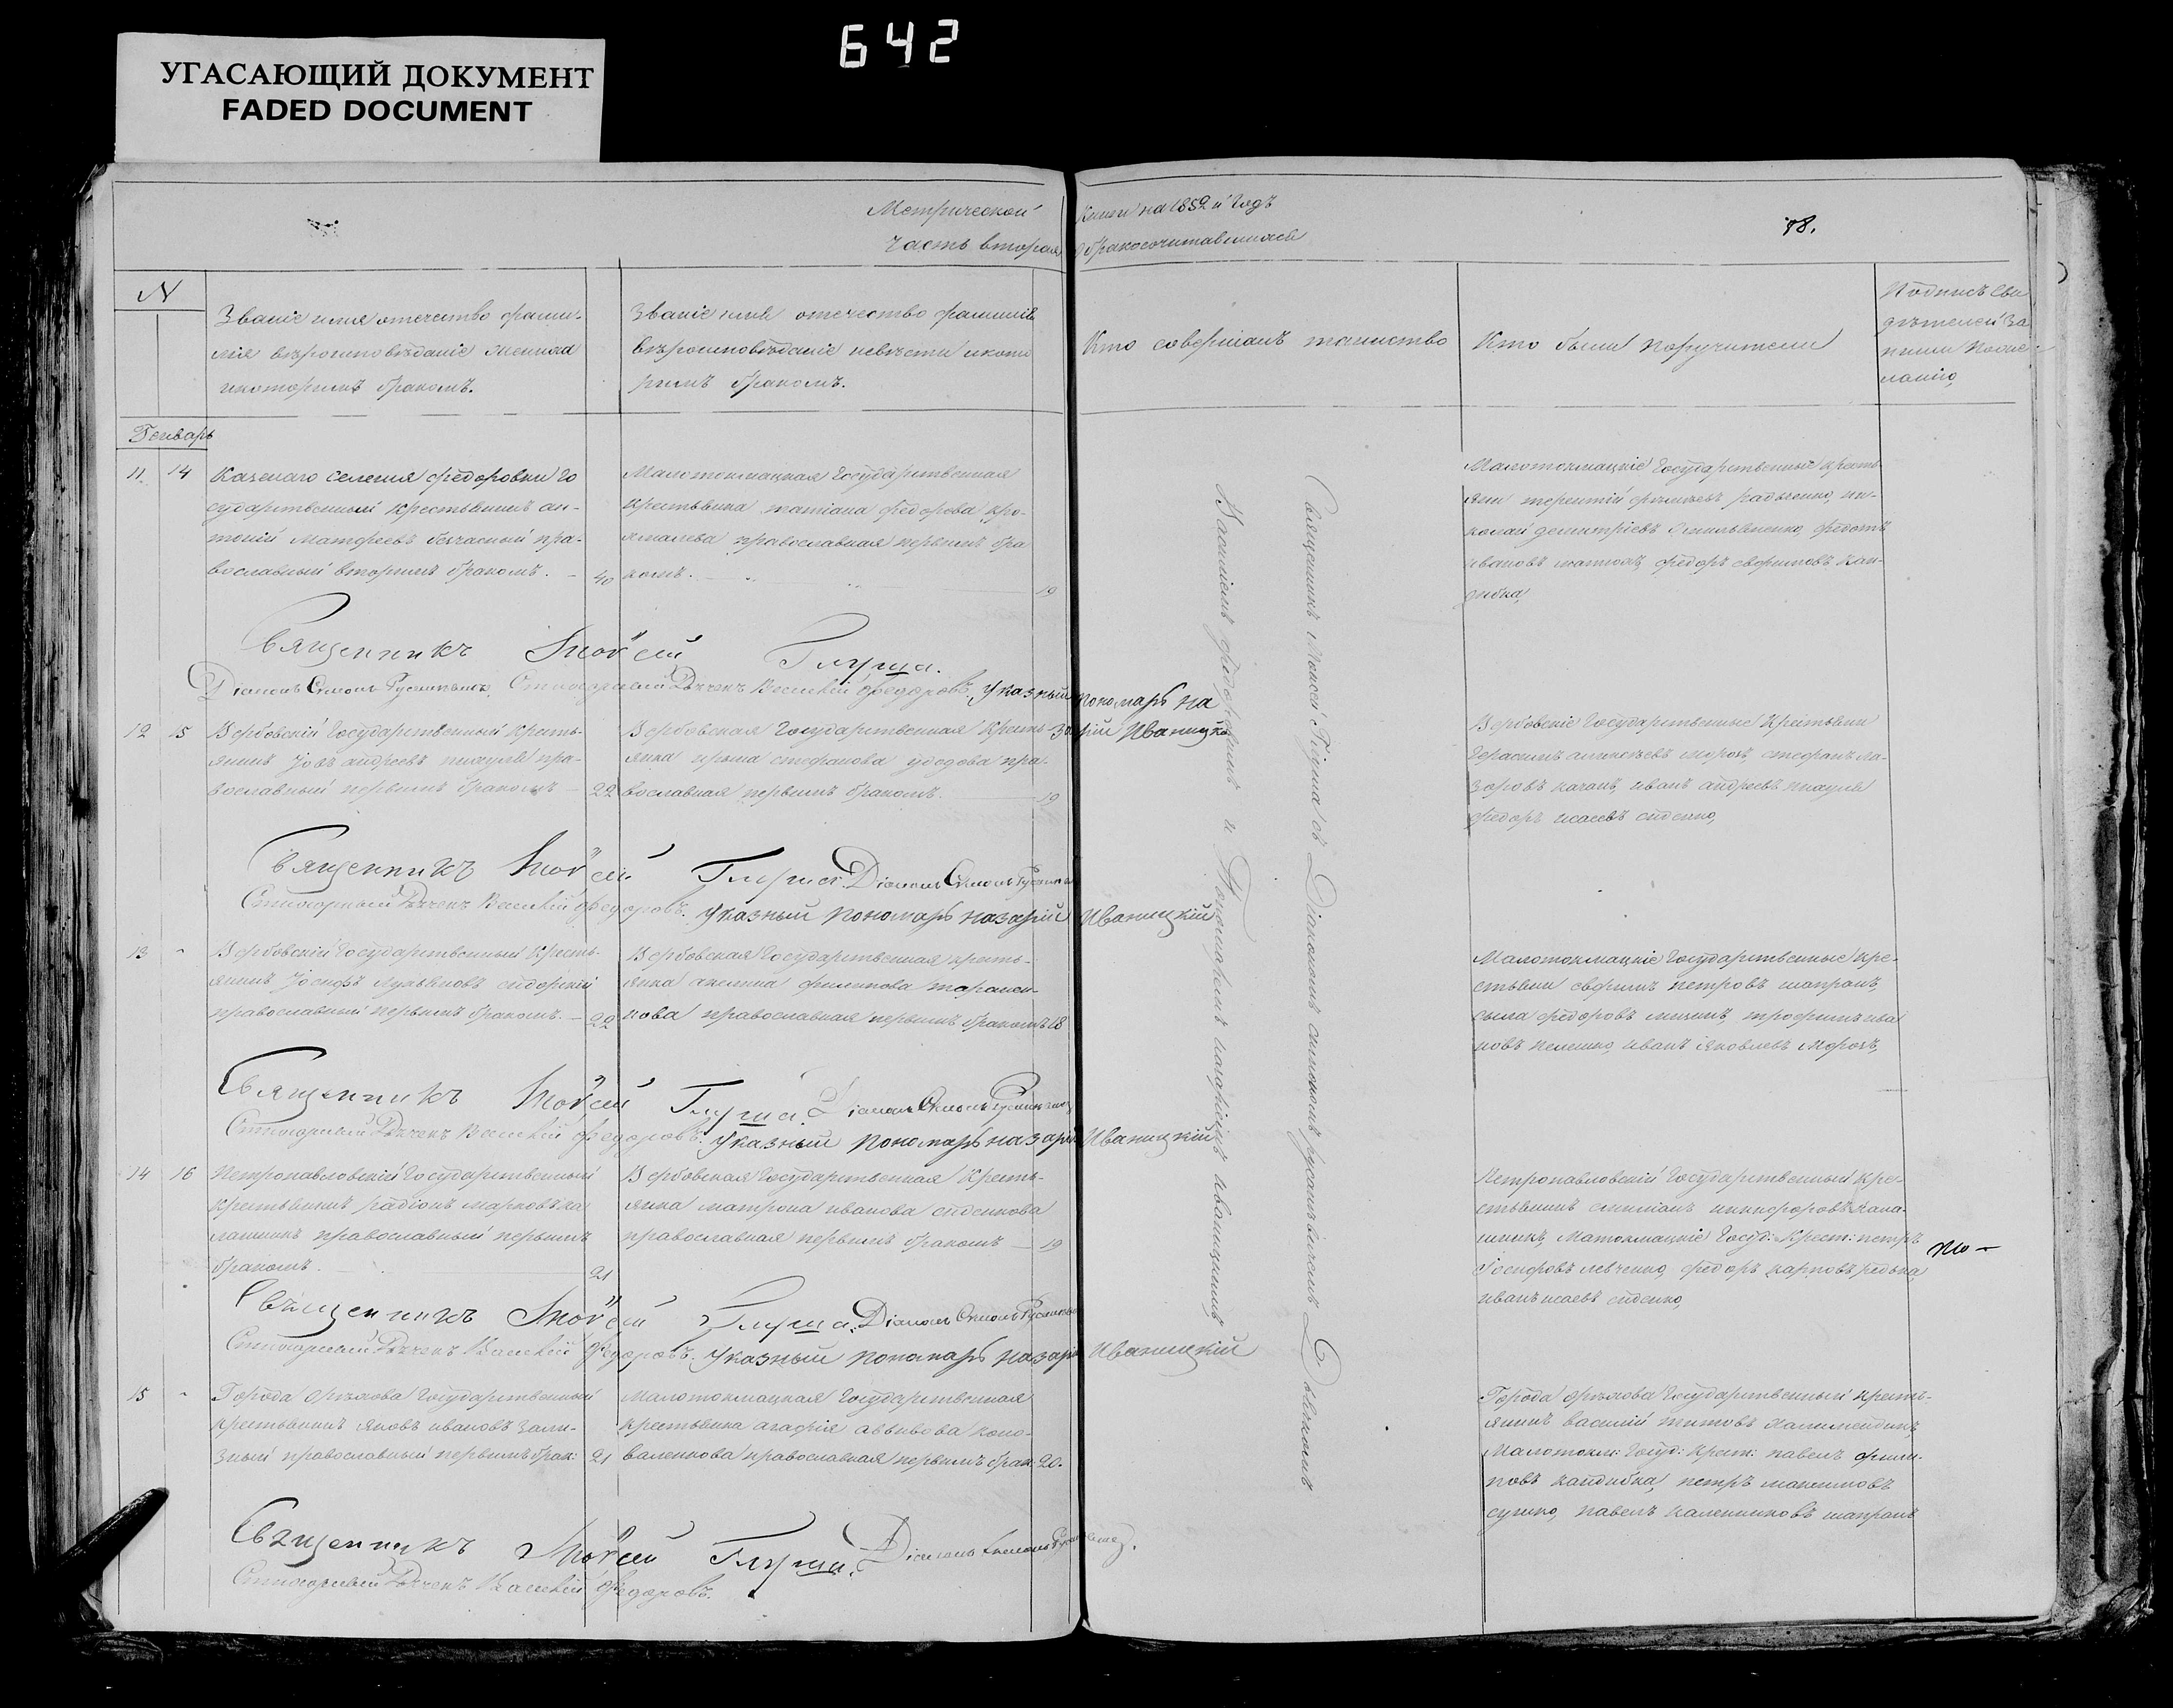 642
УГАСАЮЩИЙ ДОКУМЕНТ
FADED DOCUMENT
Метрической Книги на 1852й Годъ
часть вторая о бракосочитавшихся
78.
N
Званіе имя отечество фами-
лія вѣроисповѣданіе жениха
и которимъ бракомъ.
Званіе имя отечество фамилія
вѣроисповѣданіе невѣсти и кото
римъ бракомъ.
Кто совершалъ таинство
Кто были поручители
Подпись сви
дѣтелей за
писи по же
ланію
Генварь
11 14
Казенаго селения федоровки го
сударственный крестьянинъ ан-
тоній Матфеевъ безчасный пра-
вославный вторимъ бракомъ. 40
Малотокмацкая Государственная
крестьянка татіана федорова
православная первимъ бра
комъ. 19
Малотокмацкіе Государственные кресть
яни терентій радченко, ни-
колай демитріевъ федотъ
ивановъ федоръ ефимовъ кан-
дибка,
Священникъ Моѵсей Глуша.
Діаконъ Симонъ Стихарный Дьячекъ Василій Федоровъ. Указный пономарь на
зарій Иваницкій
12 15
Вербовскій Государственный кресть-
янинъ Іовъ андреевъ пихуля пра-
вославный первимъ бракомъ 22
Вербовская Государственная кресть-
янка ирина стефанова удодова пра-
вославная первимъ бракомъ. 19
Вербовскіе Государственные Крестьяни
Герасимъ алексѣевъ морозъ, стефанъ ла-
заровъ качанъ, иванъ андреевъ пихуля
федоръ исаевъ сиденко,
Священникъ Моѵсей Глуша. Діаконъ Симонъ
Стихарный Дьячекъ Василій Федоровъ. Указный пономарь назарій Иваницкій
13 "
Вербовскій Государственный кресть-
янинъ Іосифъ лукьяновъ сидорскій
православный первимъ бракомъ. 22
Вербовская Государственная кресть-
янка акелина филипова таранен-
кова православная первимъ бракомъ 18
Малотокмацкіе Государственные кре-
стьяни ефимъ петровъ шапранъ,
сыла федоровъ трофимъ ива
новъ пелешко, иванъ яковлевъ морозъ,
Священникъ Моѵсей Глуша. Діаконъ Симонъ
Стихарный Дьячекъ Василій Федоровъ. Указный пономарь назарій Иваницкій
14 16
Петропавловскій Государственный
крестьянинъ радіонъ марковъ ка
лашникъ православный первимъ
бракомъ. 21
Вербовская Государственная кресть-
янка матрона иванова сиденкова
православная первимъ бракомъ 19
Петропавловскій Государственный кре-
стьянинъ никифоровъ кала-
шникъ, Малтокмацкіе Госуд: Крест: петръ
Іосифовъ левченко, федоръ карповъ редька,
иванъ исаевъ сиденко,
Священникъ Моѵсей Глуша. Діаконъ Симонъ
Стихарный Дьячекъ Василій Федоровъ. Указный пономарь назарій Иваницкій
15 "
Города орѣхова Государственный
крестьянинъ яковъ ивановъ зали-
зный православный первимъ брак: 21
Малотокмацкая Государственная
крестьянка агафія коно-
валенкова православная первимъ брак: 20.
Города орѣхова Государственный кресть-
янинъ василій титовъ
Малотокм: Госуд: крест: павелъ фили-
повъ кандибка, петръ максимовъ
сушко, павелъ калениковъ шапранъ
Священникъ Моѵсей Глуша. Діаконъ Симонъ
Стихарный Дьячекъ Василій Федоровъ.
Священникъ Моисей Глуша съ Діакономъ симономъ Дьячкомъ
Василіемъ федоровимъ и Пономаремъ назаріемъ иваницкимъ